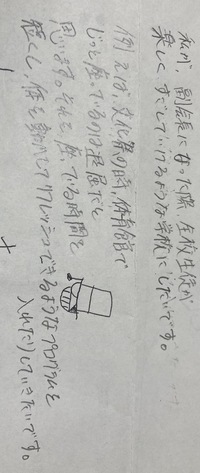 私が、副会長になった際、全校生徒が
楽しく、すごしていけるような学校にしたいです。
例えば、文化祭の時、体育館で
じっと座っているのは退屈だと
思います。それを、座っている時間を
短くし、体を動かしてリフレッシュできるようなプログラムを
入れたりしていきたいです。